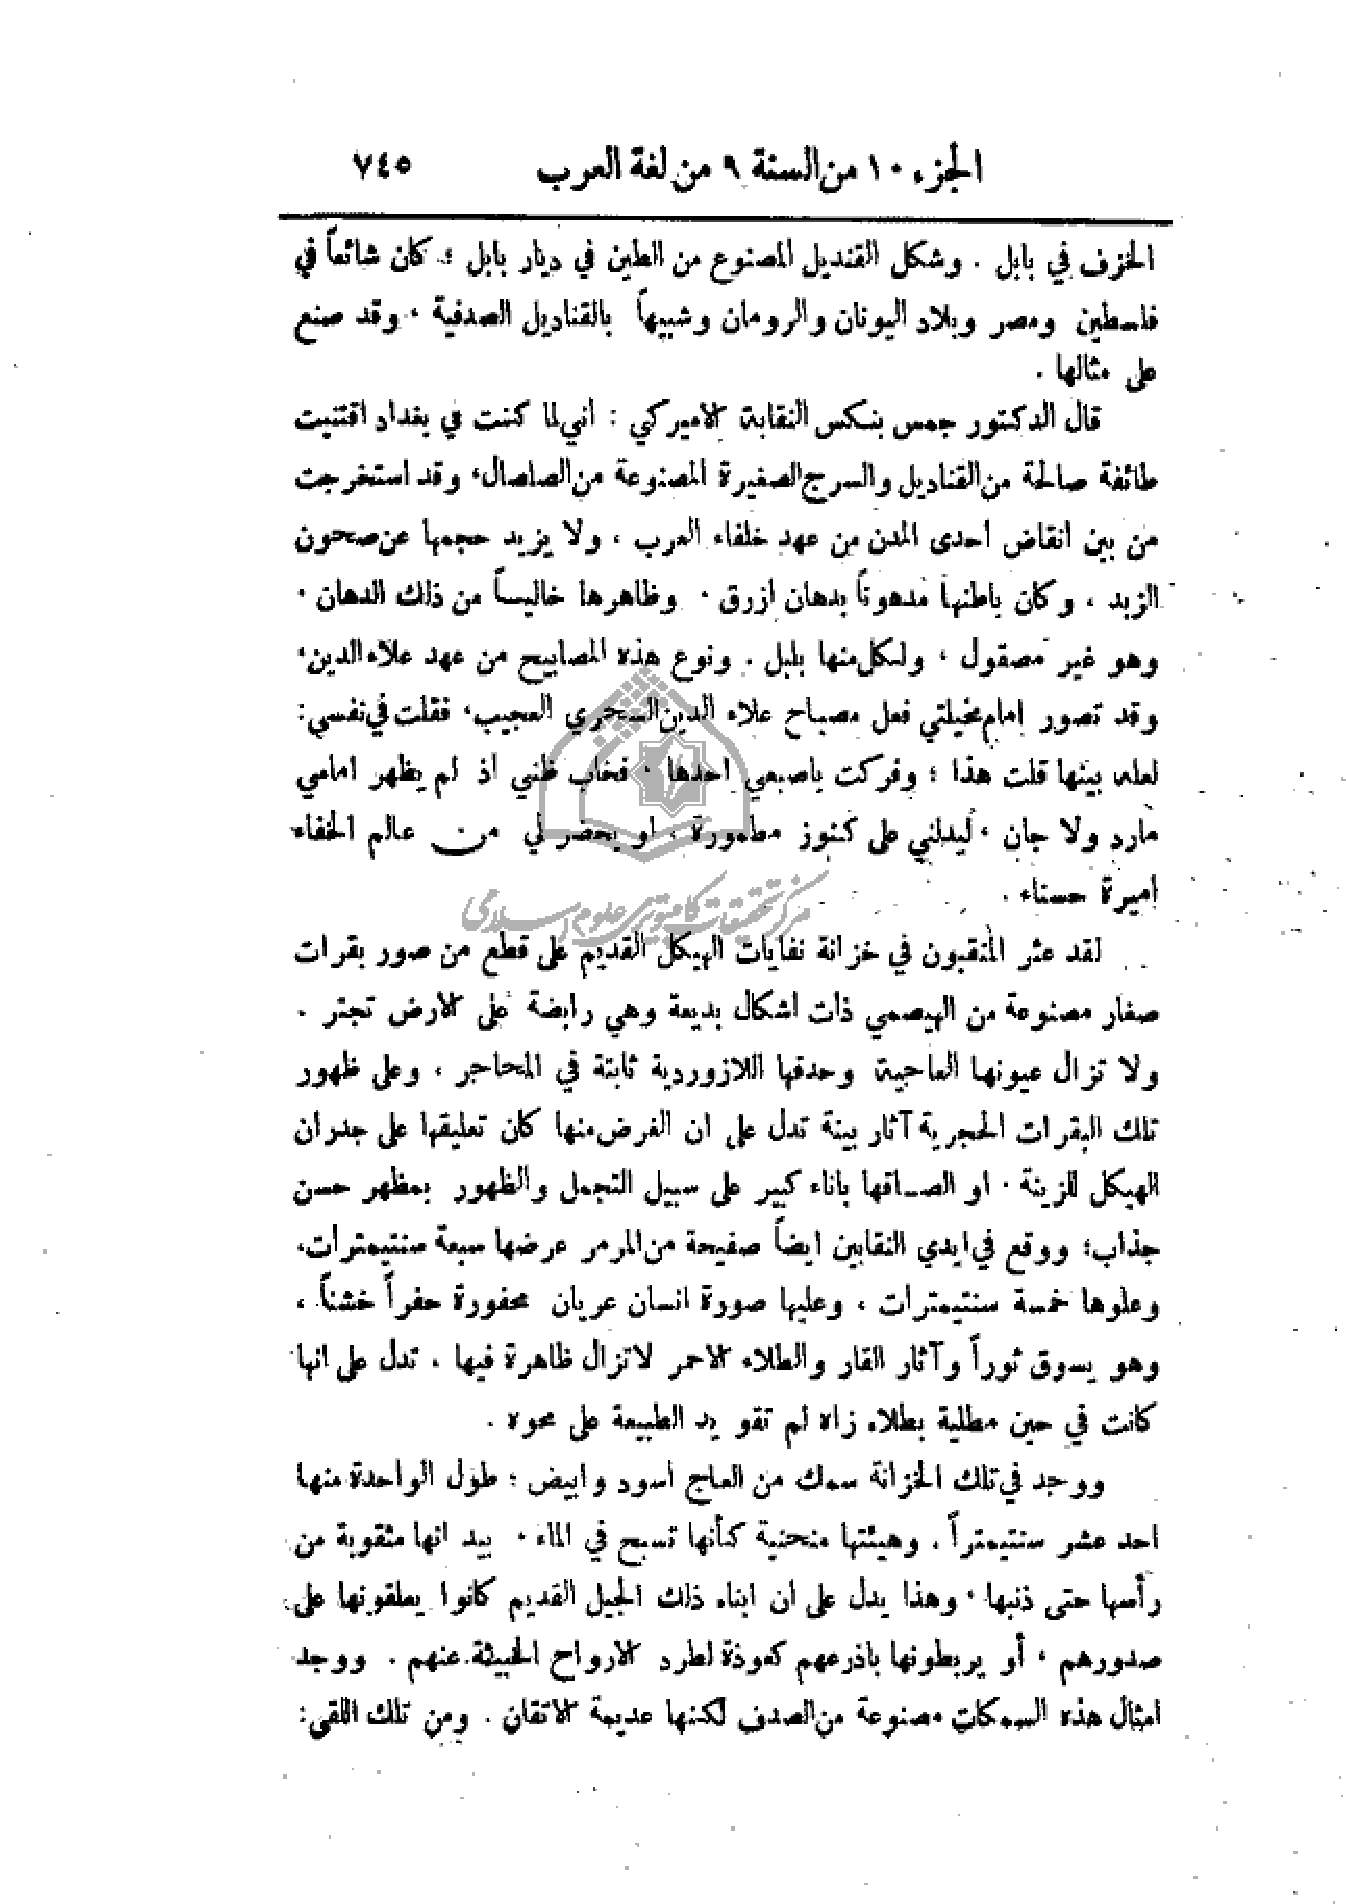 الجزء ١٠ من السنة ٩ من لغة العرب ٧٤٥
الخزف في بابل . وشكل القنديل المصنوع من الطين في ديار بابل ؛ كان شائعاً في
فلسطين ومصر وبلاد اليونان والرومان وشبيهاً بالقناديل الصدفية ، وقد صنع
على مثالها .
قال الدكتور جمس بنكس النقابة الاميركي : اني لما كنت في بغداد اقتنيت
طائفة صالحة من القناديل والسرج الصغيرة المصنوعة من الصلصال ، وقد استخرجت
من بين انقاض احدى المدن من عهد خلفاء العرب ، ولا يزيد حجمها عن صحون
الزبد ، وكان باطنها مدهوناً بدهان ازرق . وظاهرها خاليساً من ذلك الدهان .
وهو غير مصقول ، ولكل منها بلبل . ونوع هذه المصابيح من عهد علاء الدين ،
وقد تصور امام مخيلتي فعل مصباح علاء الدين السحري العجيب ، فقلت في نفسي :
لعله بينها قلت هذا ؛ وفركت باصبعي احدها . فخاب ظني اذ لم يظهر امامي
مارد ولا جان . ليدلني على كنوز مطمورة ، او يحضر لي من عالم الخفاء
اميرة حسناء .
لقد عثر المنقبون في خزانة نفايات الهيكل القديم على قطع من صور بقرات
صغار مصنوعة من الهيصمي ذات اشكال بديعة وهي رابضة على الارض تجتر .
ولا تزال عيونها العاجية وحدقها اللازوردية ثابتة في المحاجر ، وعلى ظهور
تلك البقرات الحجرية آثار بينة تدل على ان الغرض منها كان تعليقها على جدران
الهيكل للزينة . او الصاقها باناء كبير على سبيل التجمل والظهور بمظهر حسن
جذاب ؛ ووقع في ايدي النقابين ايضاً صفيحة من المرمر عرضها سبعة سنتيمترات ،
وعلوها خمسة سنتيمترات ، وعليها صورة انسان عريان محفورة حفراً خشناً ،
وهو يسوق ثوراً وآثار القار والطلاء الاحمر لا تزال ظاهرة فيها ، تدل على انها
كانت في حين مطلية بطلاء زاه لم تقو يد الطبيعة على محوه .
ووجد في تلك الخزانة سمك من العاج اسود وابيض ؛ طول الواحدة منها
احد عشر سنتيمتراً . وهيئتها منحنية كأنها تسبح في الماء . بيد انها مثقوبة من
رأسها حتى ذنبها . وهذا يدل على ان ابناء ذلك الجيل القديم كانوا يعلقونها على
صدورهم ، أو يربطونها باذرعهم كعوذة لطرد الارواح الخبيثة عنهم . ووجد
امثال هذه السمكات مصنوعة من الصدف لكنها عديمة الاتقان . ومن تلك اللقى :
مركز تحقيقات كامپيوتری علوم اسلامی